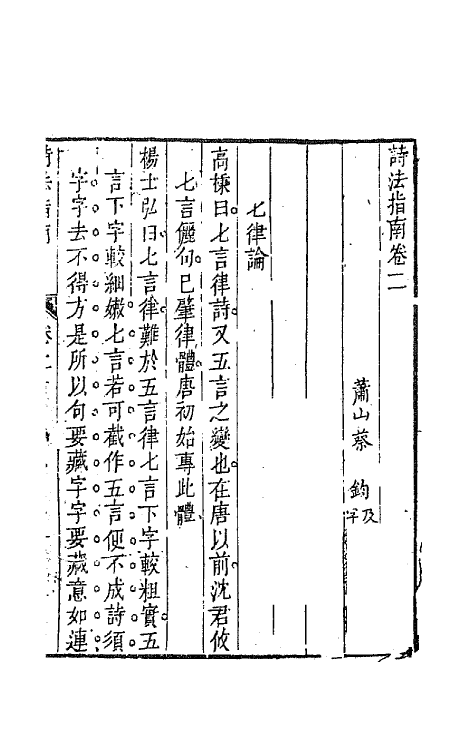 詩法指南卷二
蕭山蔡鈞及字
七律論
高棅曰七言律詩又五言之變也在唐以前沈君攸
七言儷句已肇律體唐初始專此體
楊士弘曰七言律難於五言律七言下字較粗實五
言下字較細嫩七言若可截作五言便不成詩須
字字去不得方是所以句要藏字字要藏意如連
詩法指南 卷二